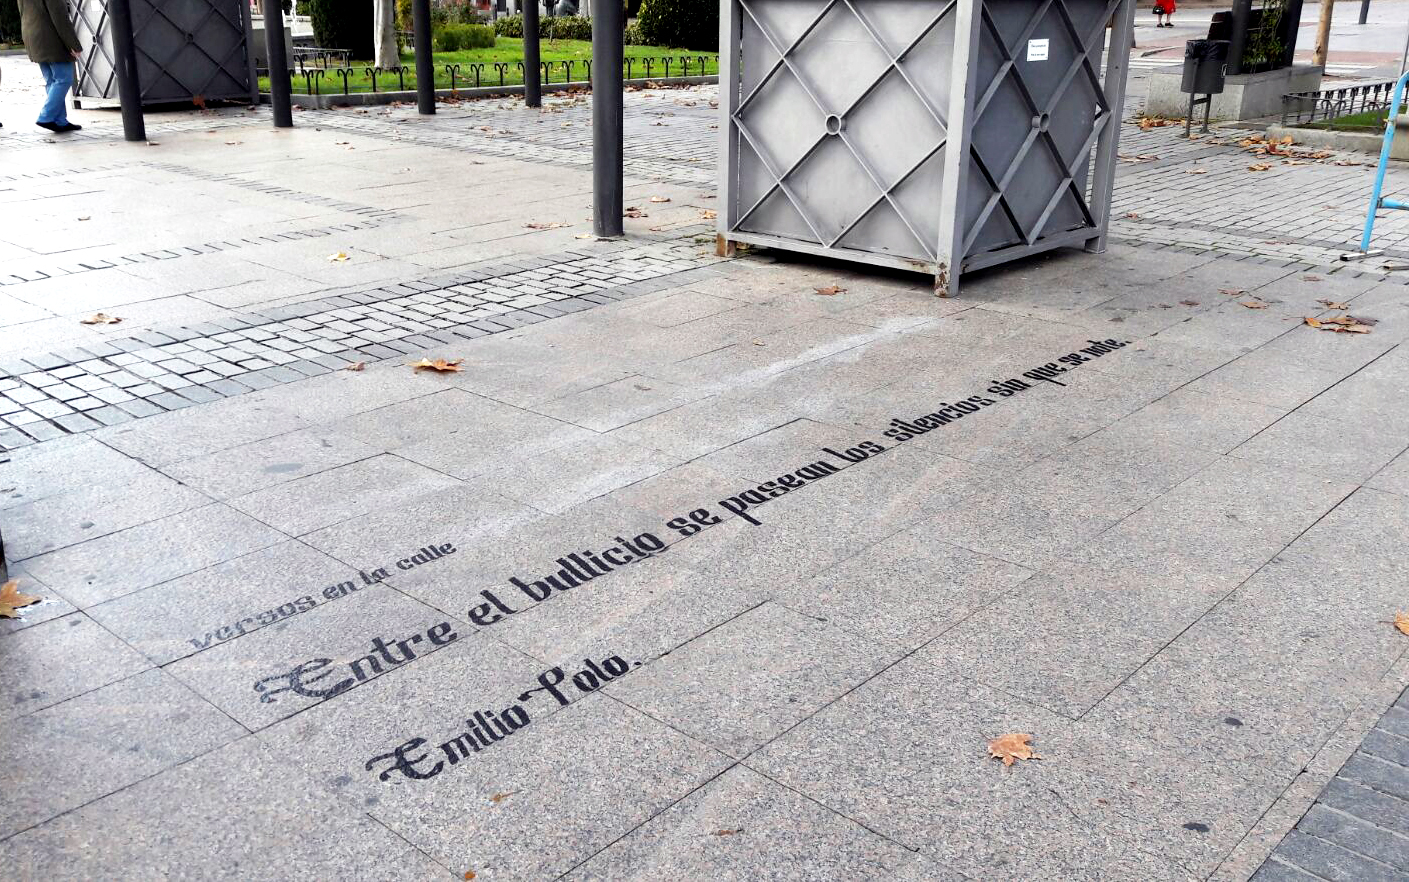 versos en la calle
Entre el bullicio se pasean los silencios, sin que se note.
Emilio Polo.